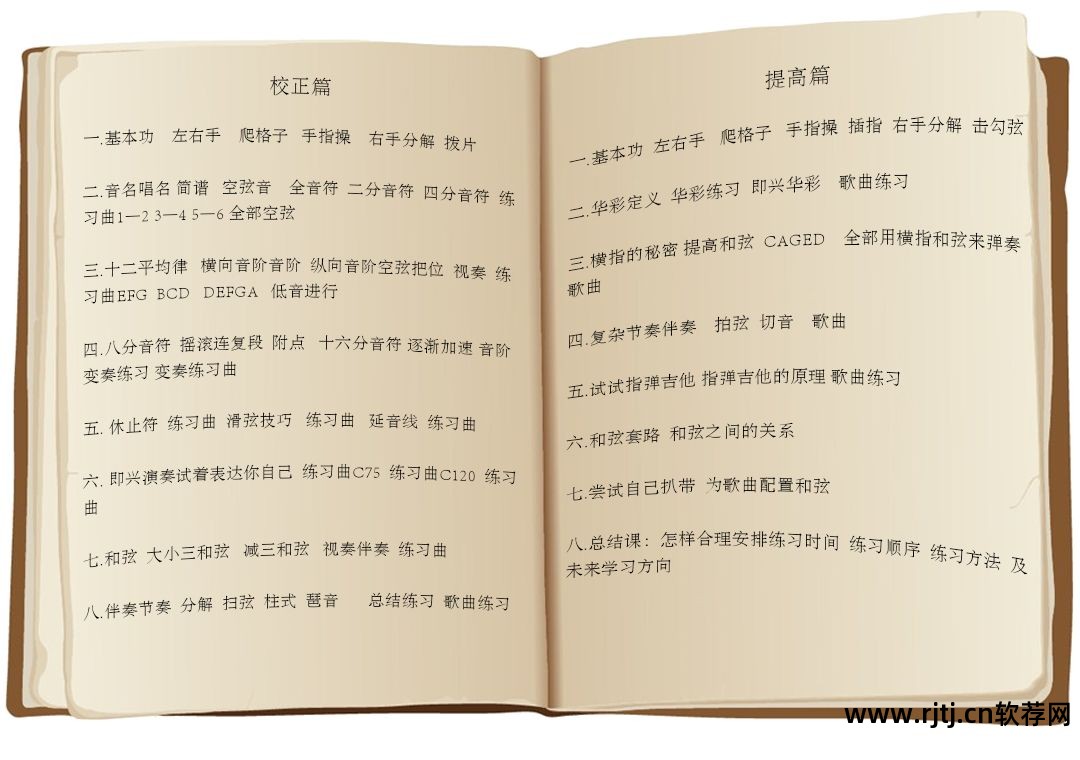 校正篇
一.基本功 左右手 爬格子 手指操 右手分解 拨片
二.音名唱名 简谱 空弦音 全音符 二分音符 四分音符 练
习曲1—2 3—4 5—6 全部空弦
三.十二平均律 横向音阶音阶 纵向音阶空弦把位 视奏 练
习曲EFG BCD DEFGA 低音进行
四.八分音符 摇滚连复段 附点 十六分音符 逐渐加速 音阶
变奏练习 变奏练习曲
五. 休止符 练习曲 滑弦技巧 练习曲 延音线 练习曲
六. 即兴演奏试着表达你自己 练习曲C75 练习曲C120 练习
曲
七.和弦 大小三和弦 减三和弦 视奏伴奏 练习曲
八.伴奏节奏 分解 扫弦 柱式 琶音 总结练习 歌曲练习
提高篇
一.基本功 左右手 爬格子 手指操 插指 右手分解 击勾弦
二.华彩定义 华彩练习 即兴华彩 歌曲练习
三.横指的秘密 提高和弦 CAGED 全部用横指和弦来弹奏
歌曲
四.复杂节奏伴奏 拍弦 切音 歌曲
五.试试指弹吉他 指弹吉他的原理 歌曲练习
六.和弦套路 和弦之间的关系
七.尝试自己扒带 为歌曲配置和弦
八.总结课：怎样合理安排练习时间 练习顺序 练习方法 及
未来学习方向
www.rjtj.cn软荐网